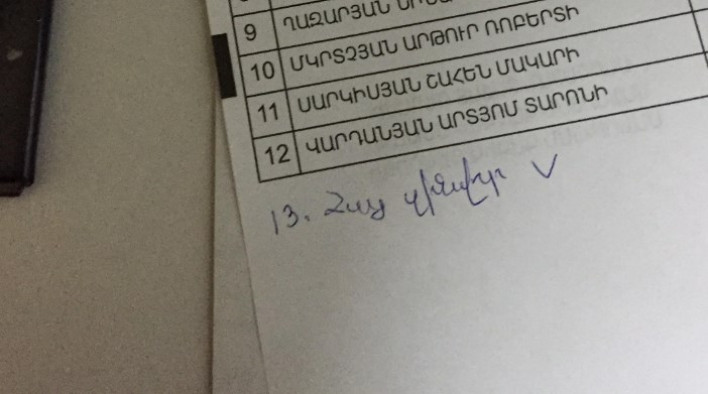 9 ՂԱԶԱՐՅԱՆ
10 ՄԿՐՏՉՅԱՆ ԱՐԹՈՒՐ ՌՈԲԵՐՏԻ
11 ՍԱՐԿԻՍՅԱՆ ՇԱՀԵՆ ՄԱԿԱՐԻ
12 ՎԱՐԴԱՆՅԱՆ ԱՐՏՅՈՄ ՏԱՐՈՆԻ
13. Հայ զինվոր V